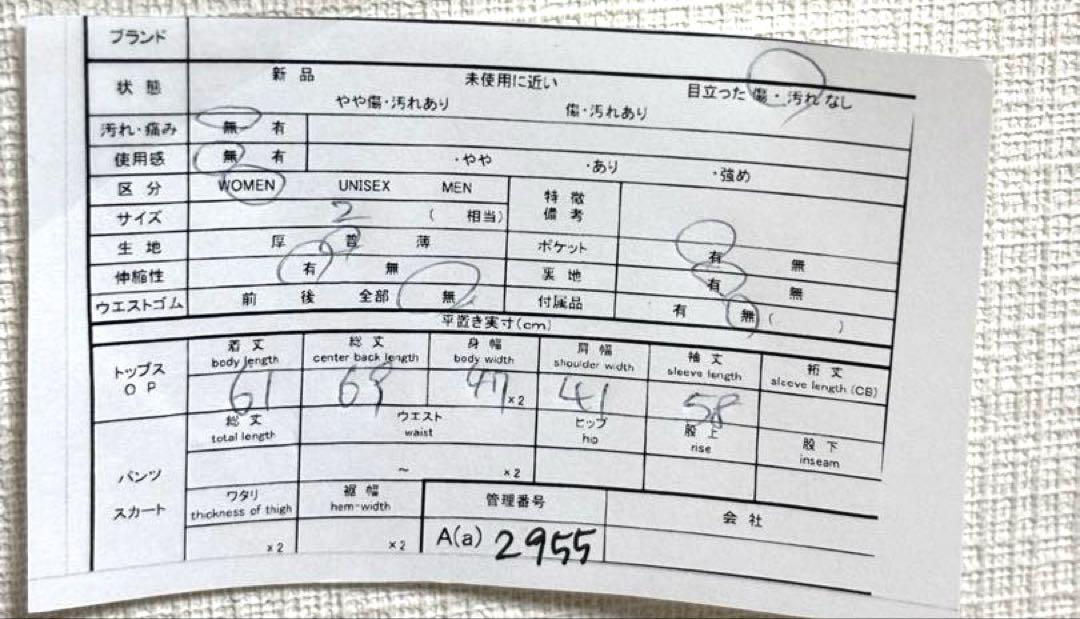 ブランド
状態 新品 未使用に近い 目立った傷・汚れなし
やや傷・汚れあり 傷・汚れあり
汚れ・痛み 無 有
使用感 無 有 ・やや ・あり ・強め
区分 WOMEN UNISEX MEN 特徴 備考
サイズ 2 ( 相当)
生地 厚 普 薄 ポケット 有 無
伸縮性 有 無 裏地 有 無
ウエストゴム 前 後 全部 無 付属品 有 無 ( )
平置き実寸(cm)
トップス OP
着丈 総丈 身幅 肩幅 袖丈 裄丈
body length center back length body width shoulder width sleeve length sleeve length (CB)
61 69 47 ×2 41 58
パンツ スカート
総丈 ウエスト ヒップ 股上 股下
total length waist hip rise inseam
~ ×2
ワタリ 裾幅 管理番号 会社
thickness of thigh hem-width
×2 ×2 A(a) 2955